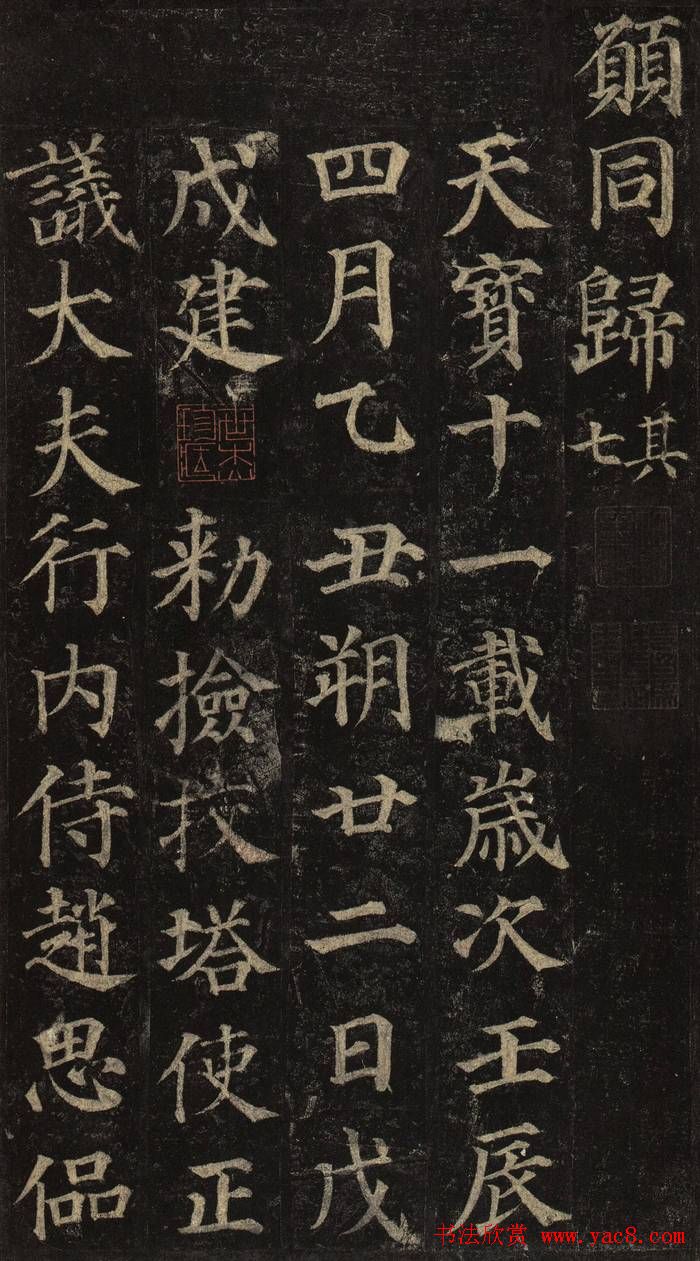 願同歸其七
天寶十一載歲次壬辰
四月乙丑朔廿二日戊
戌建勑撿挍塔使正
議大夫行內侍趙思偘
书法欣赏 www.yac8.com